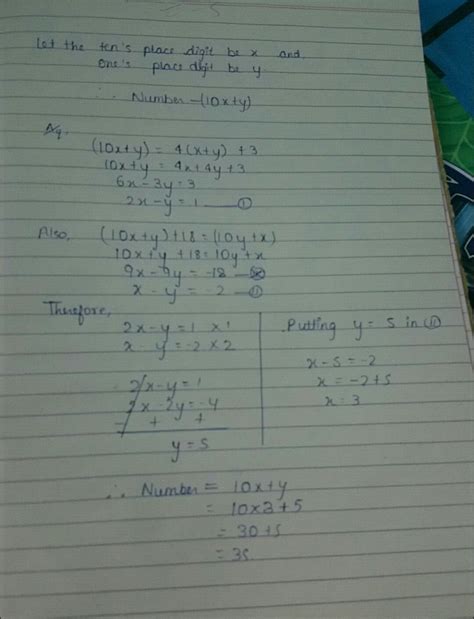 Let the ten's place digit be x and
one's place digit be y.
∴ Number -(10x+y)
Aq,
(10x+y) = 4(x+y) +3
10x+y = 4x+4y+3
6x-3y=3
2x-y=1 —①
Also, (10x+y)+18=(10y+x)
10x+y +18=10y+x
9x-9y=-18
x-y=-2 —⑪
Therefore,
2x-y=1 x1
x-y=-2 x2
2x-y=1
2x-2y=-4
- + +
y=5
Putting y=5 in ⑪
x-5=-2
x=-2+5
x=3
∴ Number = 10x+y
= 10x3+5
= 30+5
= 35